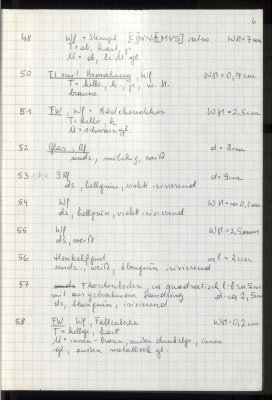 6
48 Wf + Stempel retro WH = 7 cm
T = ob, hart, f
50 TI mit Bemalung, Wf WH = 0,7 cm
T = hellb, h, f, w. H.
braun
51 FW, Wf + Rädchendekor WH = 2,5 cm
T = hellb, h
Ü = schwarz gl
52 Glas, Rf
unds, milchig, weiß d = 8 cm
53 3 Rf d = 9 cm
ds, hellgrün, violett irisierend
54 Wf WH = ca 0,2 cm
ds, hellgrün, violett irisierend
55 Wf WH = 2,5 mm
ds, weiß
56 Henkelfgmt ml = 2 cm
unds., weiß, blaugrün irisierend
57 Flaschenboden, ca quadratisch
mit ausgebrochenem Standring d = ca 2,5 cm
ds, blaugrün, irisierend
58 FW Wf, Faltenbecher WH = 0,2 cm
T = hellgr, hart
Ü = innen - braun, außen dunkelgr, innen
gl, außen metallisch gl.